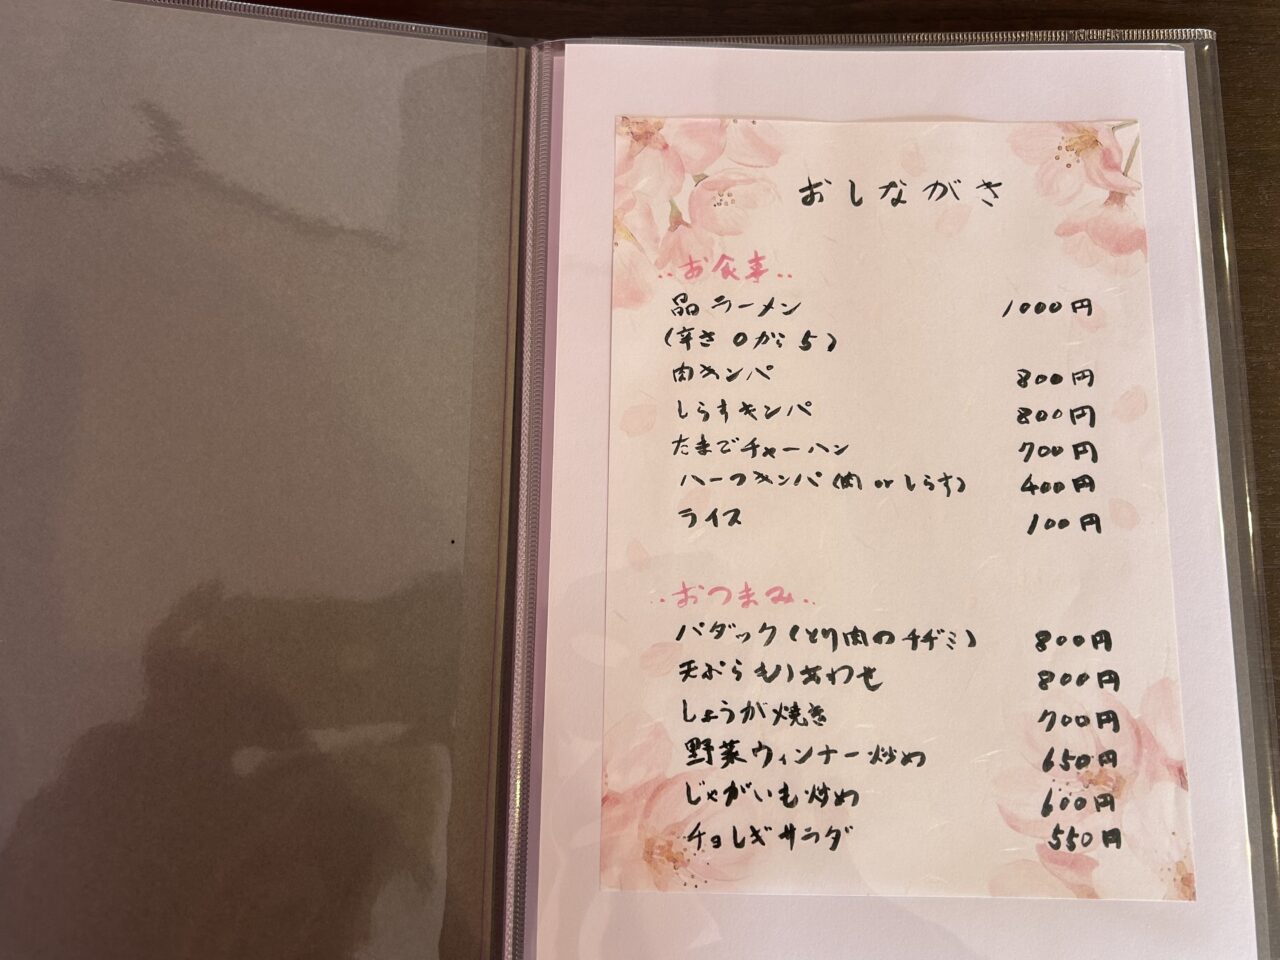 おしながき
..お食事..
晶ラーメン 1000円
(辛さ 0から 5)
肉キンパ 800円
しらすキンパ 800円
たまごチャーハン 700円
ハーフキンパ(肉 or しらす) 400円
ライス 100円
..おつまみ..
パダック(とり肉のチヂミ) 800円
天ぷらもりあわせ 800円
しょうが焼き 700円
野菜ウィンナー炒め 650円
じゃがいも炒め 600円
チョレギサラダ 550円